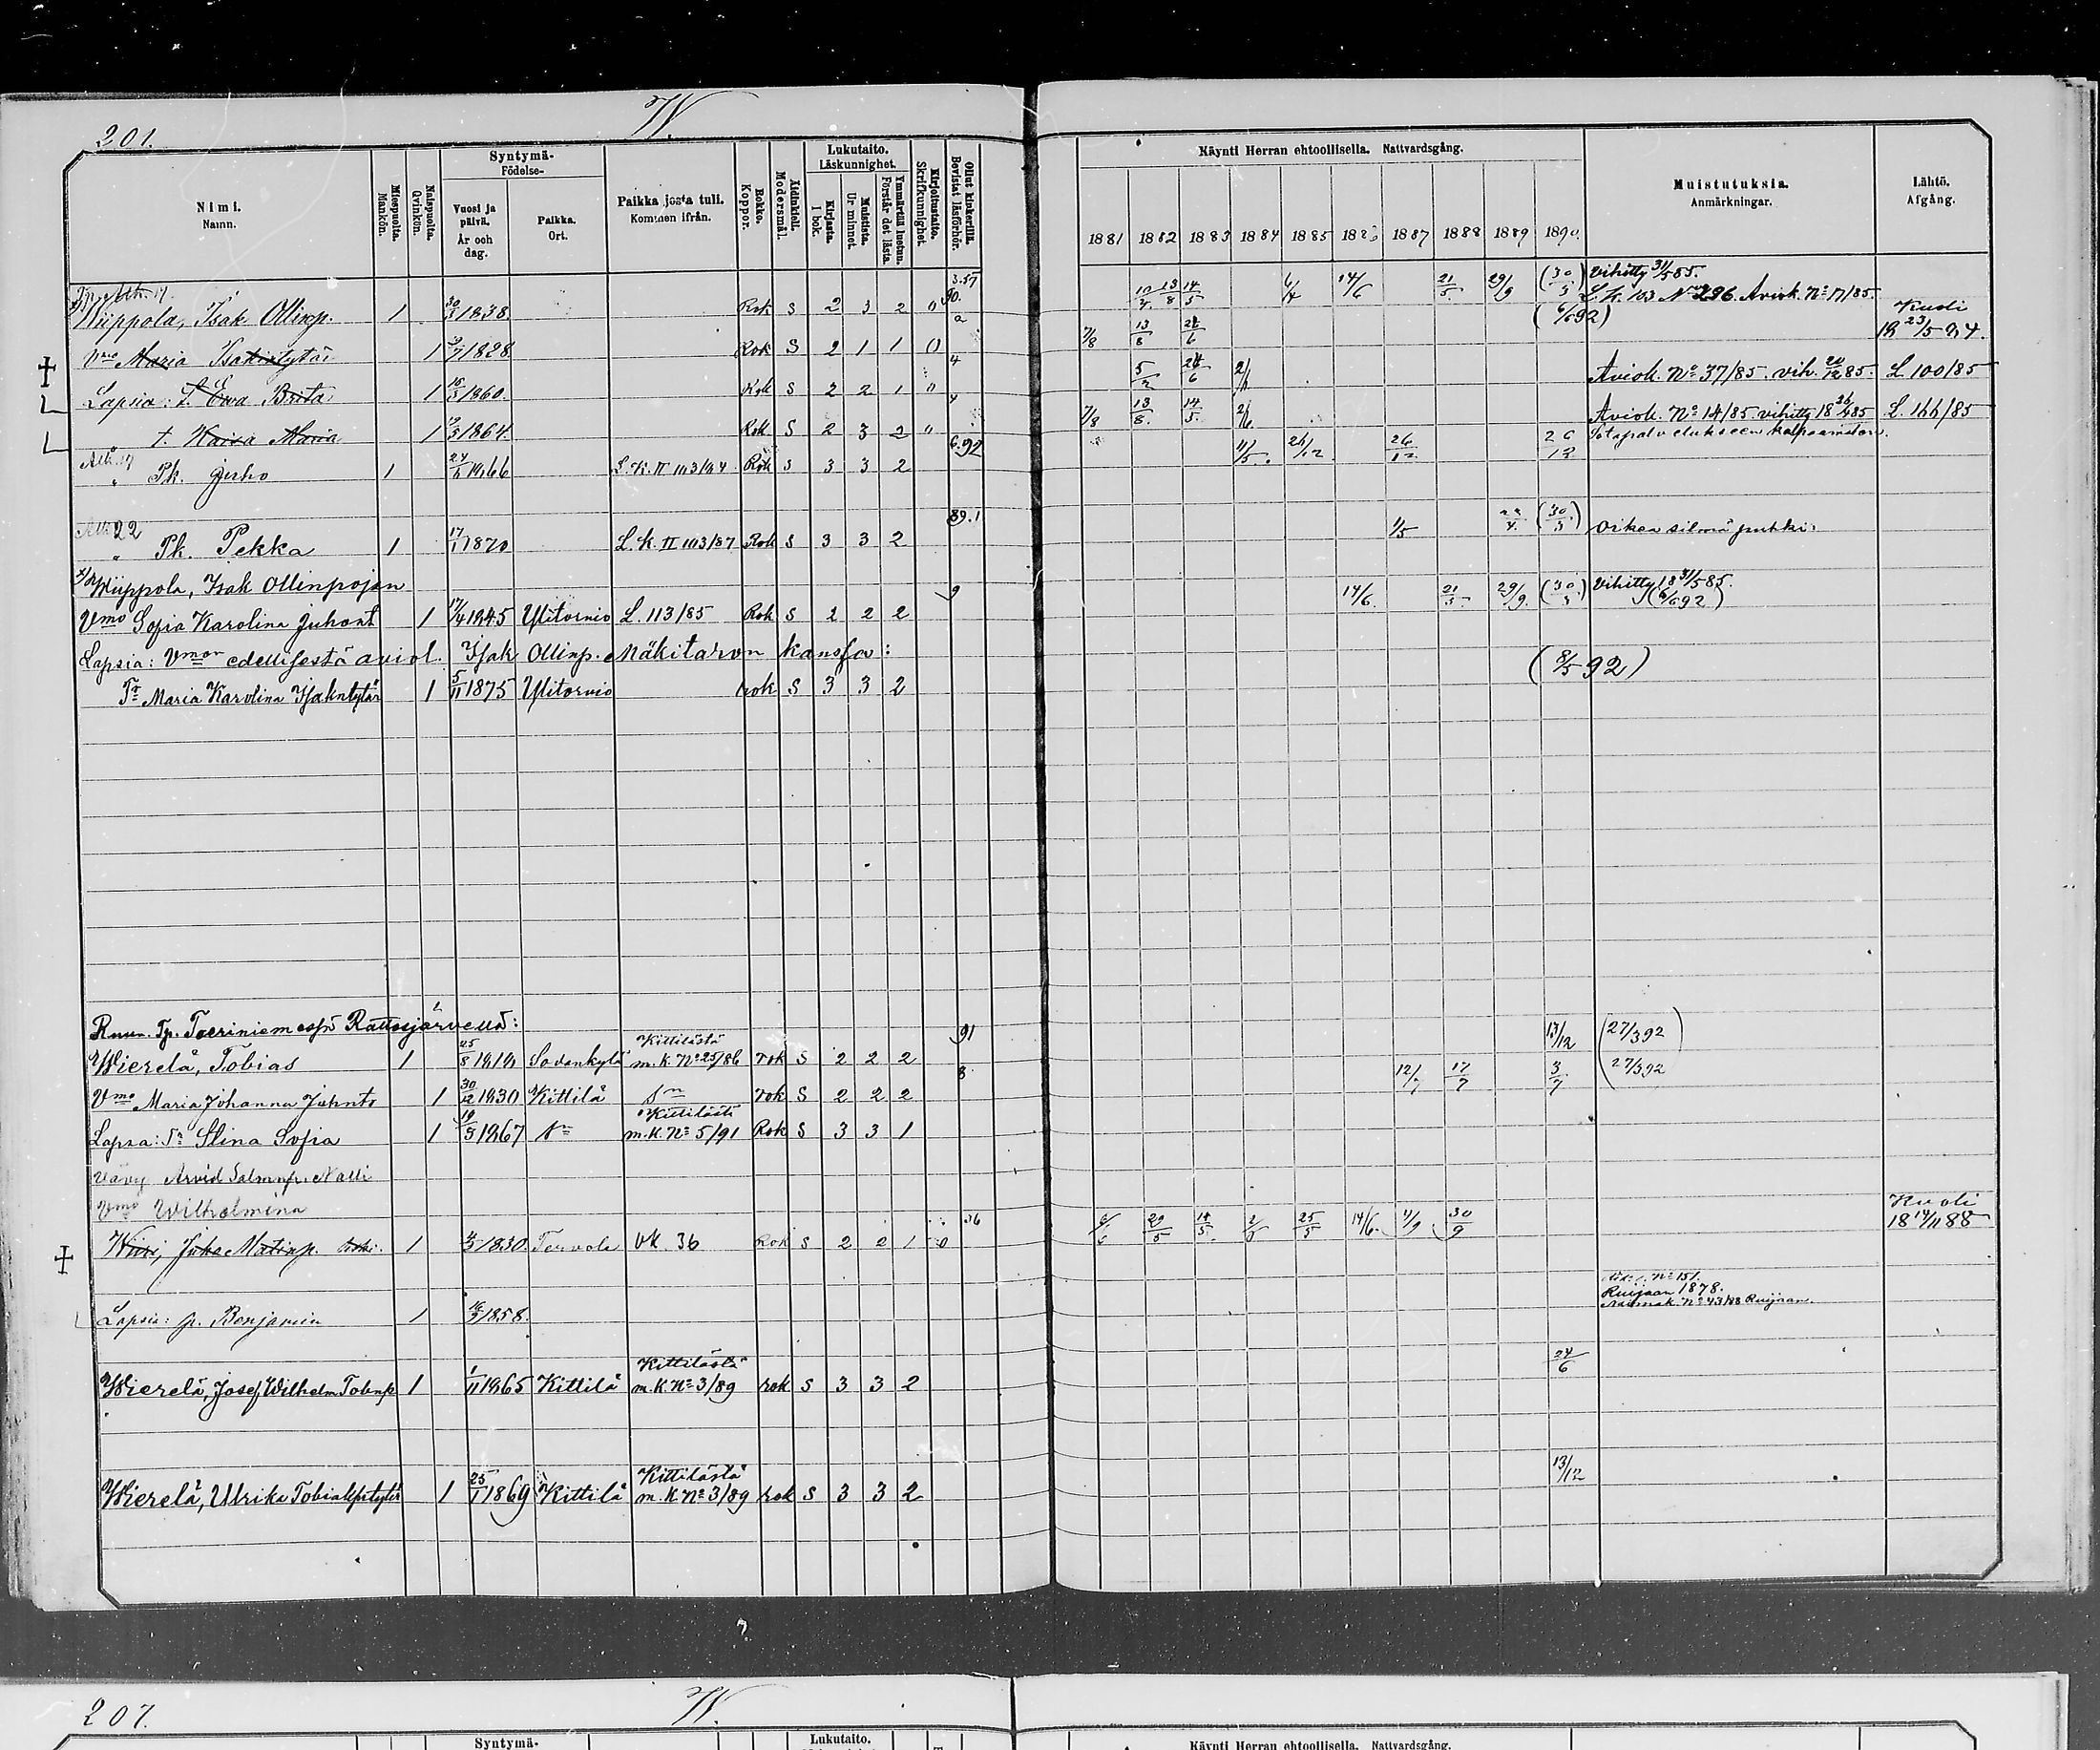 201.
W.
Nimi.
Namn.
Miespuolta.
Mankön.
Naispuolta.
Qvinkön.
Syntymä-
Födelse-
Vuosi ja
päivä.
År och
dag.
Paikka.
Ort.
Paikka josta tuli.
Kommen ifrån.
Rokko.
Koppor.
Äidinkieli.
Modersmål.
Lukutaito.
Läskunnighet.
Kirjasta.
I bok.
Muistista.
Ur minnet.
Ymmärtää luetun.
Förstår det lästa.
Kirjoitustaito.
Skrifkunnighet.
Ollut kinkerillä.
Bevistat läsförhör.
Käynti Herran ehtoollisella. Nattvardsgång.
1881 1882 1883 1884 1885 1886 1887 1888 1889 1890.
Muistutuksia.
Anmärkningar.
Lähtö.
Afgång.
Wiippola, Isak Ollinp. 1 30/3 1838. Rok S 2 3 2 0 10/4 13/8 14/5 14/6 21/5 29/9 (30/3) Vihitty 31/5 85.
L.K. 103 No 296. Aviok. No 17/85.
(6/6 92)
Vmo Maria Isakintytär 1 1828 Rok S 2 1 1 0 7/8 13/8 24/6 Kuoli
18 23/5 84.
Lapsia: t. Ewa Brita 1 1860. Rok S 2 2 1 24/6 Aviok. No 37/85. vih. 85. L 100/85
" t. Kaisa Maria 1 1864. Rok S 2 3 2 7/8 13/8. 14/5. Aviok. No 14/85. vihitty 85 L. 166/85
" Pk. Juho 1 1866 L.K. II 103/84 Rok S 3 3 2 6.92 11/5. 26/12 26/12 26/12
" Pk. Pekka 1 17/1 1870 L.K. II 103/87 Rok S 3 3 2 89.1 1/5 (30/3) Oikea silmä puhki.
Wiippola, Isak Ollinpojan
Vmo Sofia Karolina Juhont 1 17/4 1845 Ylitornio L. 113/85 Rok S 2 2 2 9 14/6. 21/5 29/9. (30/3) Vihitty 18 31/5 85.
(6/6 92)
Lapsia: Vmon edellisestä aviol. Isak Ollinp. Mäkitaron kanssa:
(8/5 92)
Tr Maria Karolina Isakintytär 1 5/11 1875 Ylitornio rok S 3 3 2
Rattosjärvellä:
Wierelä, Tobias 1 25/8 1818 Sodankylä Kittilästä
m.k. No 25/86 rok S 2 2 2 91 13/12 (27/3 92)
Vmo Maria Johanna Juhnts 1 30/12 1830 Kittilä Sn rok S 2 2 2 8 12/7 17/7 3/7 (27/3 92)
Lapsia: Tr Stina Sofia 1 19/3 1867 Sn Kittilästä
m.k. No 5/91 Rok S 3 3 1
Vävy Arvid Salmnp. Nalli
Vmo Wilhelmina
Juho Matinp. 1 1830. Tervola Vk. 36 Rok S 2 2 1 0 36 29/5 25/5 14/6. 30/9 Kuoli
18 14/11 88
Lapsia: p. Benjamin 1 1858. No 151.
Ruijaan 1878.
No 43/88 Ruijaan.
Wierelä, Josef Wilhelm Tobnp. 1 1/11 1865 Kittilä Kittilästä
m.k. No 3/89 rok S 3 3 2 24/6
Wierelä, Ulrika Tobiaksentytär 1 25/1 1869 Kittilä Kittilästä
m.k. No 3/89 rok S 3 3 2 13/12
207.
W.
Syntymä-
Lukutaito.
Käynti Herran ehtoollisella. Nattvardsgång.